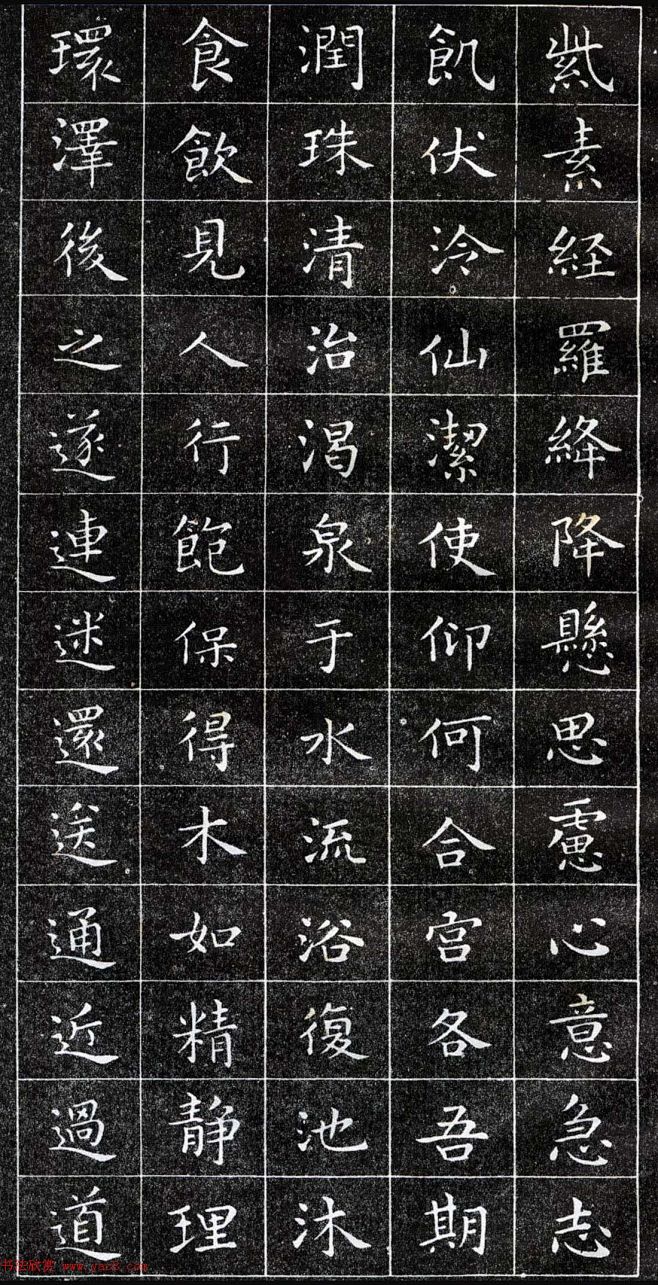 紫素経羅絳降懸思慮心意急志
飢伏泠仙潔使仰何合宮各吾期
潤珠清治渴泉于水流浴復池沐
食飲見人行飽保得木如精靜理
環澤後之遂連迷還送通近過道
书法欣赏 www.yac8.com